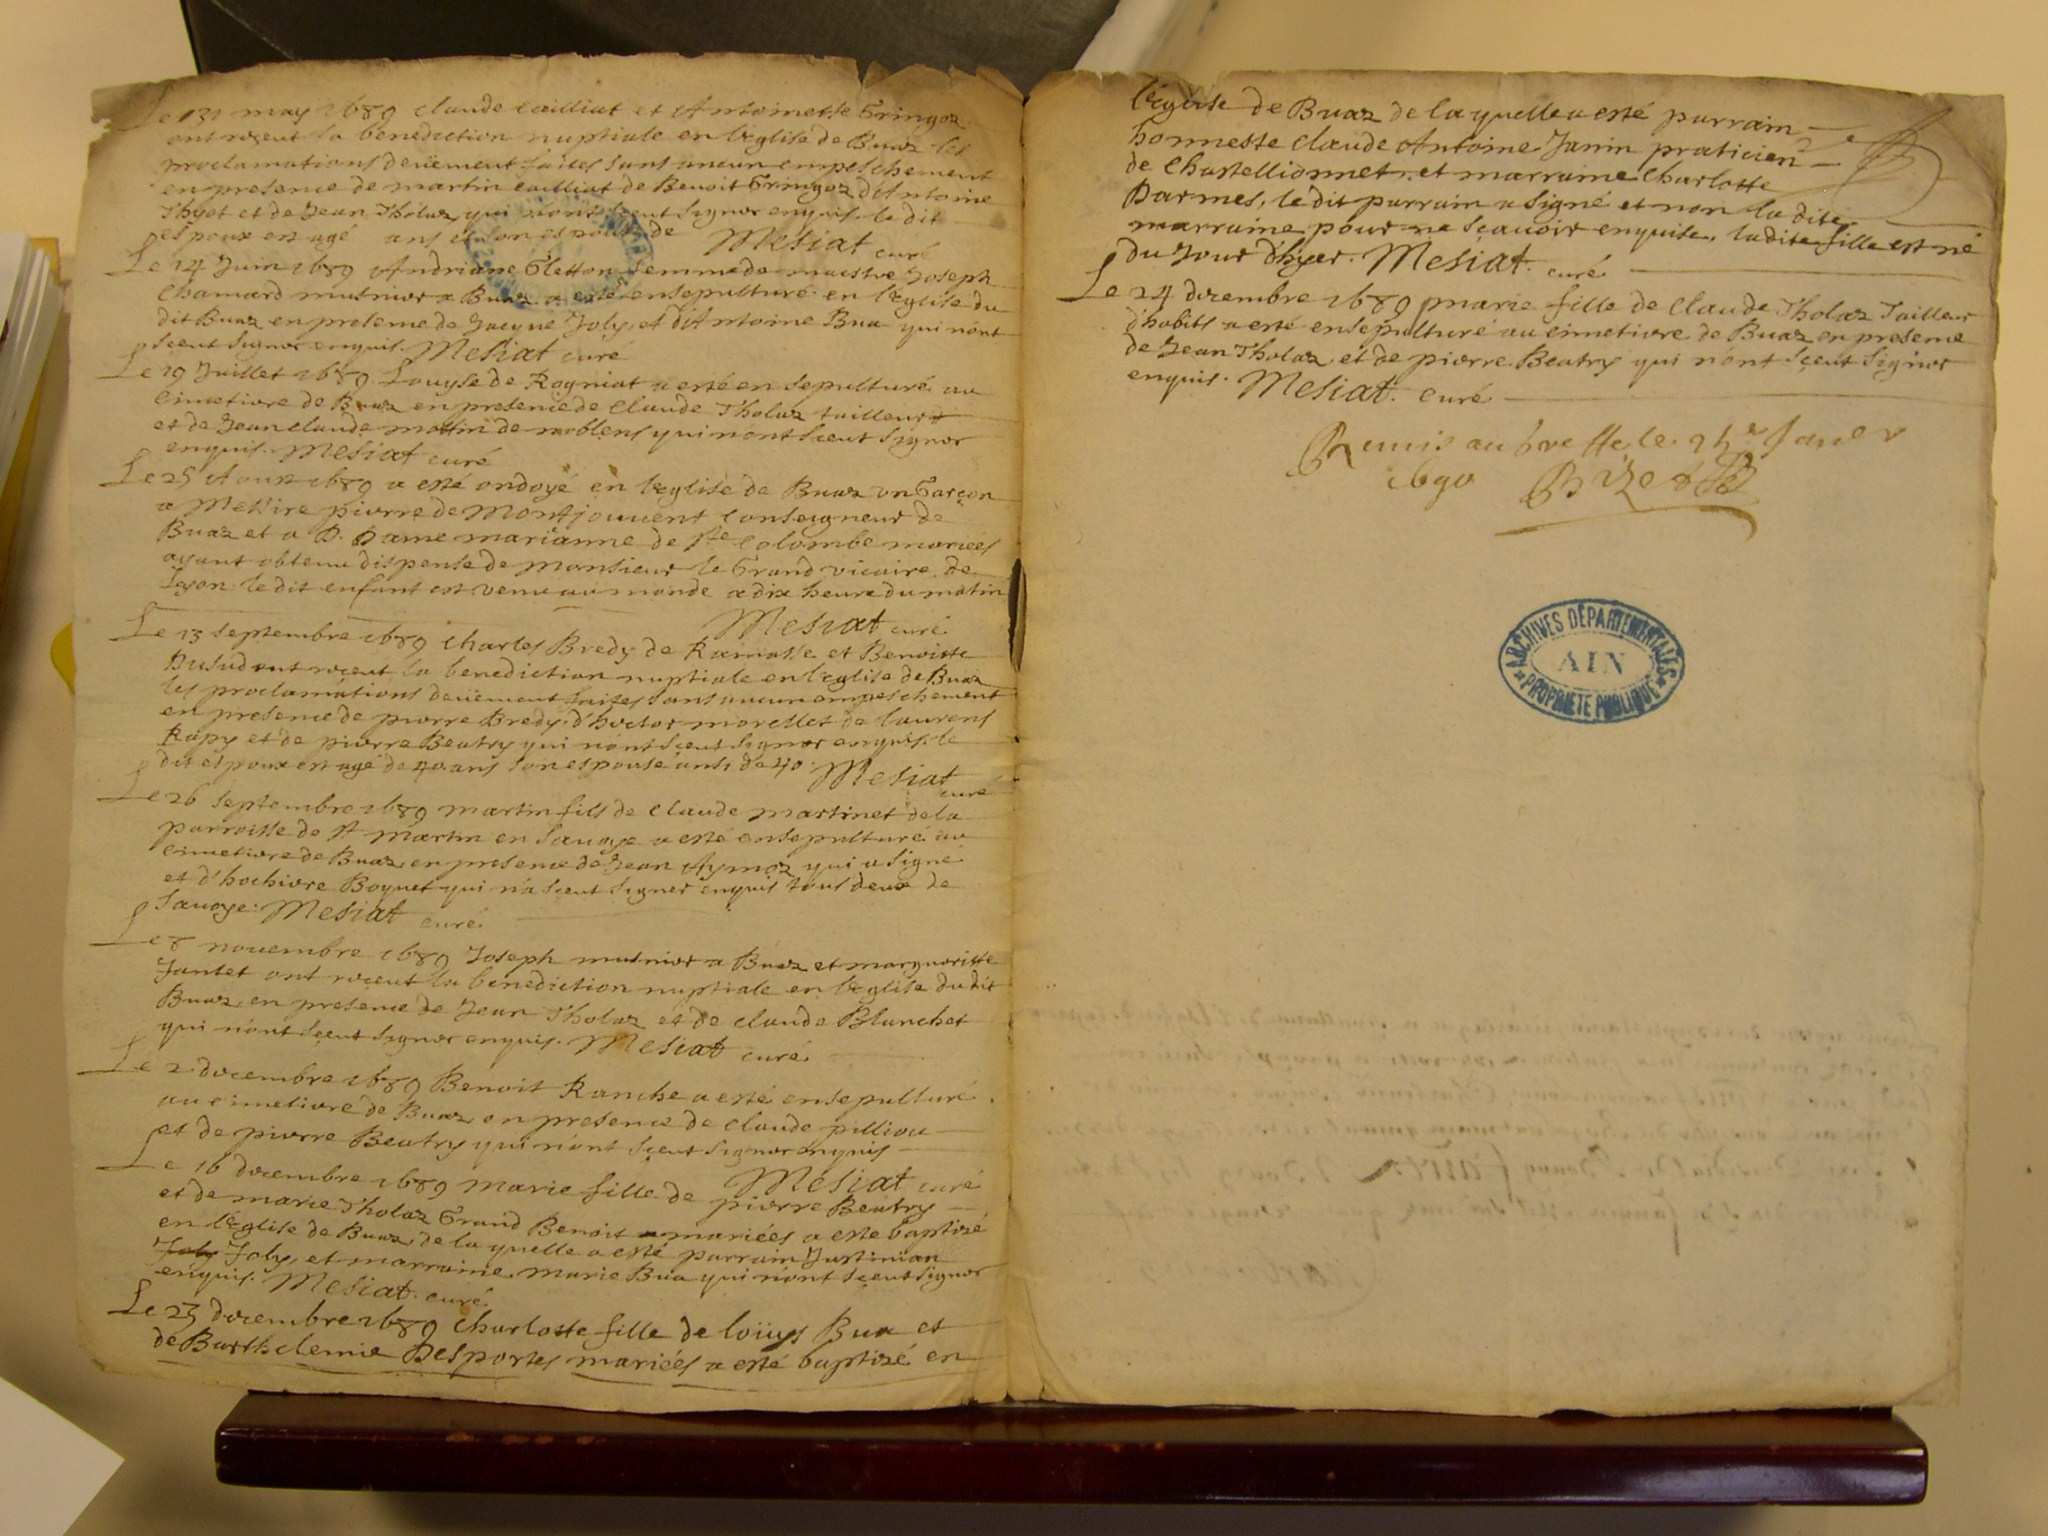 Le 131 may 1689 claude cailliat et Antoinette Gringoz
ont reçeut la benediction nuptiale en l'eglise de Buaz les
proclamations deüement faites sans aucun empeschement
en presence de martin cailliat de Benoit Gringoz d'Antoine
Thyot et de Jean Tholaz qui n'ont sçeut signer enquis. le dit
espoux est agé ans et son espouse de Mesiat curé
Le 14 Juin 1689 Andriane Gletton femme de maistre Joseph
Chamard musnier a Buaz a esté ensepulturé en l'eglise du
dit Buaz en presence de Jacque Joly, et d'Antoine Bua qui n'ont
sçeut signer enquis. Mesiat curé
Le 19 Juillet 1689 Louyse de Rogniat a esté ensepulturé au
cimetiere de Buaz en presence de Claude Tholaz tailleur
et de Jean claude mottin de noblens qui n'ont sçeut signer
enquis. Mesiat curé
Le 25 Aoust 1689 a esté ondoyé en l'eglise de Buaz un Garçon
a Messire pierre de Montjouuent conseigneur de
Buaz et a D. Dame marianne de Ste Colombe mariées
ayant obtenu dispense de monsieur le Grand vicaire de
Lyon le dit enfant est venu au monde a dix heure du matin
Mesiat curé
Le 13 septembre 1689 Charles Bredy de Ramasse et Benoiste
Dusud ont reçeut la benediction nuptiale en l'eglise de Buaz
les proclamations deüement faites sans aucun empeschement
en presence de pierre Bredy, d'hector morellet de laurens
Rapy et de pierre Beatry qui n'ont sçeut signer enquis. le
dit espoux est agé de 40 ans son espouse aussi de 40. Mesiat
curé
Le 26 septembre 1689 martin fils de claude martinet de la
parroisse de St Martin en Sauoye a esté ensepulturé au
cimetiere de Buaz en presence de Jean Aymoz qui a signé
et d' Boquet qui n'a sçeut signer enquis tous deux de
Sauoye. Mesiat curé.
Le 8 nouembre 1689 Joseph musnier a Buaz et margueritte
Jantet ont reçeut la benediction nuptiale en l'eglise du dit
Buaz en presence de Jean Tholaz et de claude Blanchet
qui n'ont sçeut signer enquis. Mesiat curé
Le 2 decembre 1689 Benoit Ranche a esté ensepulturé
au cimetiere de Buaz en presence de claude pilliou
et de pierre Beatry qui n'ont sçeut signer enquis
Mesiat curé
Le 16 decembre 1689 marie fille de pierre Beatry
et de marie Tholaz Grand Benoit mariées a esté baptizé
en l'eglise de Buaz, de la quelle a esté parrain Justinian
Joly Joly, et marraine marie Bua qui n'ont sçeut signer
enquis. Mesiat curé.
Le 23 decembre 1689 Charlotte fille de loüys Bua et
de Barthelemie Desportes mariées a esté baptizé en
l'eglise de Buaz de la quelle a esté parrain
honneste claude Antoine Janin praticien
de Chastellionnet, et marraine Charlotte
Darmes, le dit parrain a signé et non la dite
marraine pour ne sçauoir enquise, la dite fille est né
du Jour d'hyer. Mesiat. curé
Le 24 decembre 1689 marie fille de claude Tholaz Tailleur
d'habits a esté ensepulturé au cimetiere de Buaz en presence
de Jean Tholaz et de pierre Beatry qui n'ont sçeut signer
enquis. Mesiat. curé
Remis au greffe le
1690
ARCHIVES DÉPARTEMENTALES
AIN
PROPRIÉTÉ PUBLIQUE